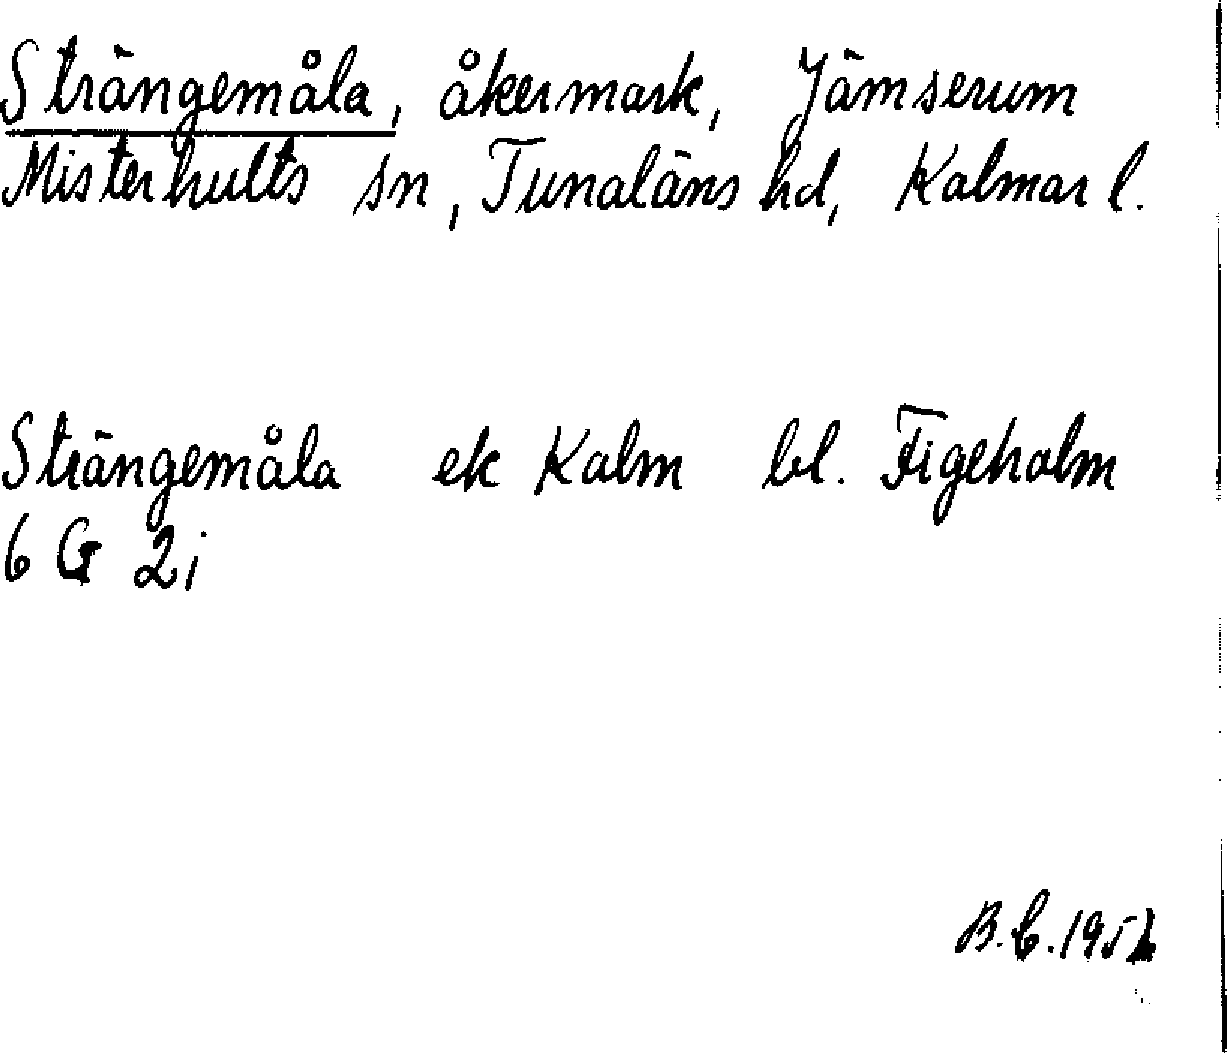 Strängemåla, åkermark, Jämserum
Misterhults sn, Tunaläns hd, Kalmar l.
Strängemåla ek Kalm bl. Figeholm
6 G 2i